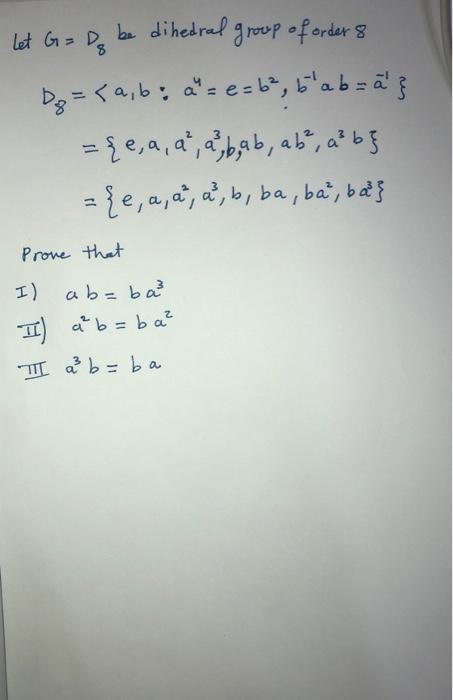 Let G = D₈ be dihedral group of order 8
D₈ = < a, b : a⁴ = e = b², b⁻¹ab = a⁻¹ }
= {e, a, a², a³, b, ab, ab², a³b}
= {e, a, a², a³, b, ba, ba², ba³}
Prove that
I) ab = ba³
II) a²b = ba²
III a³b = ba